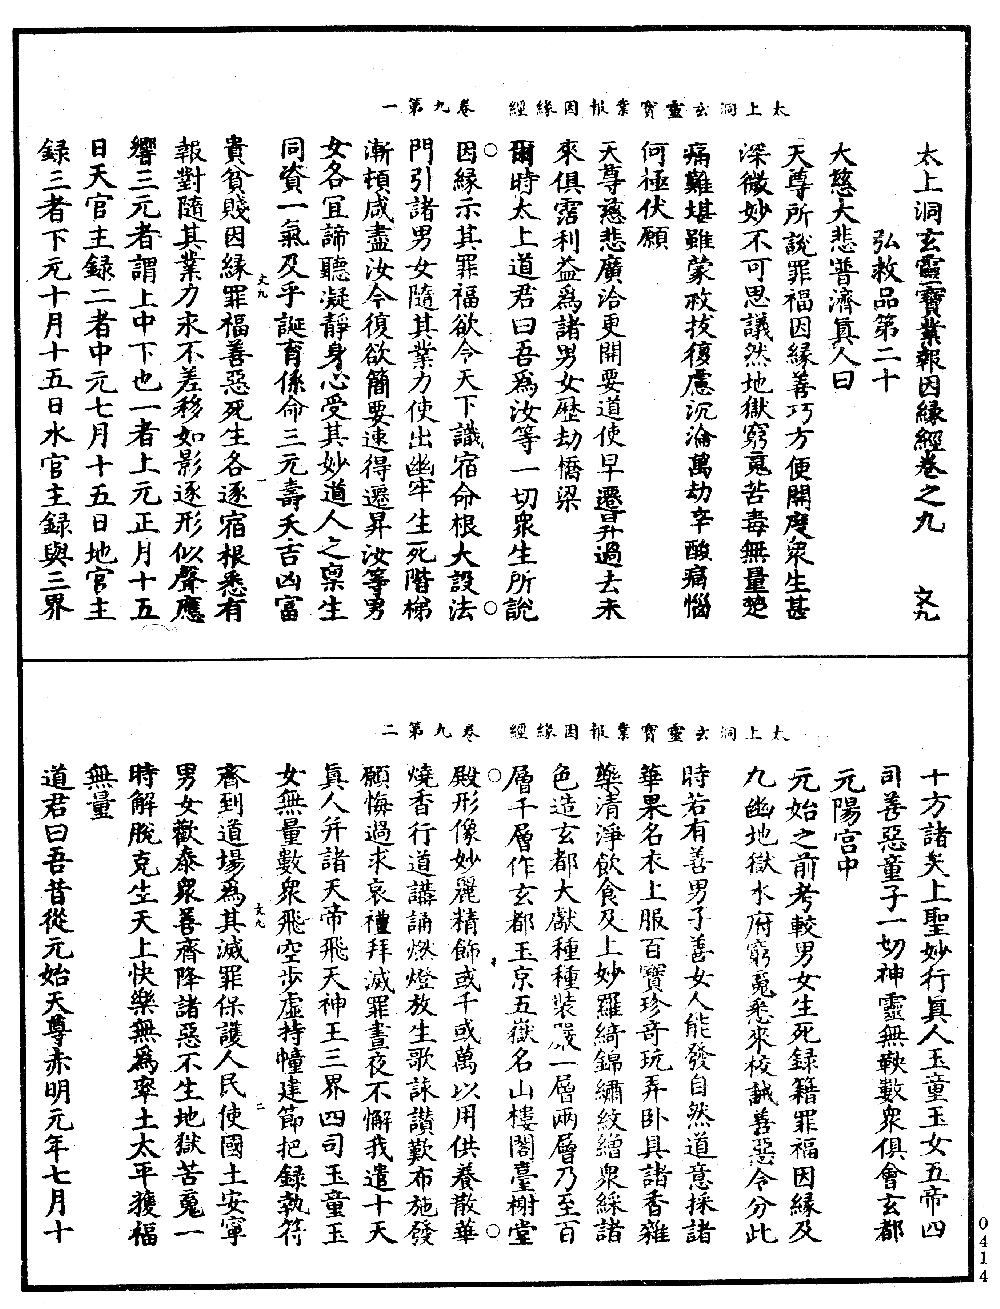 太上洞玄靈寶業報因緣經　卷九第一
太上洞玄靈寶業報因緣經卷之九　文九
弘救品第二十
大慈大悲普濟真人曰
天尊所說罪福因緣善巧方便開度眾生甚
深微妙不可思議然地獄窮䰟苦毒無量楚
痛難堪雖蒙救拔復慮沉淪萬劫辛酸痛惱
何極伏願
天尊慈悲廣洽更開要道使早遷昇過去未
來俱霑利益為諸男女歷劫橋梁
爾時太上道君曰吾為汝等一切眾生所說
因緣示其罪福欲令天下識宿命根大設法
門引諸男女隨其業力使出幽牢生死階梯
漸頓咸盡汝今復欲簡要速得遷昇汝等男
女各宜諦聽凝靜身心受其妙道人之稟生
同資一氣及乎誕育係命三元壽夭吉凶富
文九　一
貴貧賤因緣罪福善惡死生各逐宿根悉有
報對隨其業力來不差移如影逐形似聲應
響三元者謂上中下也一者上元正月十五
日天官主錄二者中元七月十五日地官主
錄三者下元十月十五日水官主錄與三界
太上洞玄靈寶業報因緣經　卷九第二
十方諸天上聖妙行真人玉童玉女五帝四
司善惡童子一切神靈無鞅數眾俱會玄都
元陽宮中
元始之前考較男女生死錄籍罪福因緣及
九幽地獄水府窮䰟悉來校誡善惡令分此
時若有善男子善女人能發自然道意採諸
華果名衣上服百寶珍奇玩弄臥具諸香雜
藥清淨飲食及上妙羅綺錦繡紋繒眾綵諸
色造玄都大獻種種裝嚴一層兩層乃至百
層千層作玄都玉京五嶽名山樓閣臺榭堂
殿形像妙麗精飾或千或萬以用供養散華
燒香行道講誦燃燈放生歌詠讚歎布施發
願悔過求哀禮拜滅罪晝夜不懈我遣十天
真人并諸天帝飛天神王三界四司玉童玉
女無量數眾飛空步虛持幢建節把錄執符
文九　二
齋到道場為其滅罪保護人民使國土安寧
男女歡泰眾善齊降諸惡不生地獄苦䰟一
時解脫克生天上快樂無為率土太平獲福
無量
道君曰吾昔從元始天尊赤明元年七月十
0414